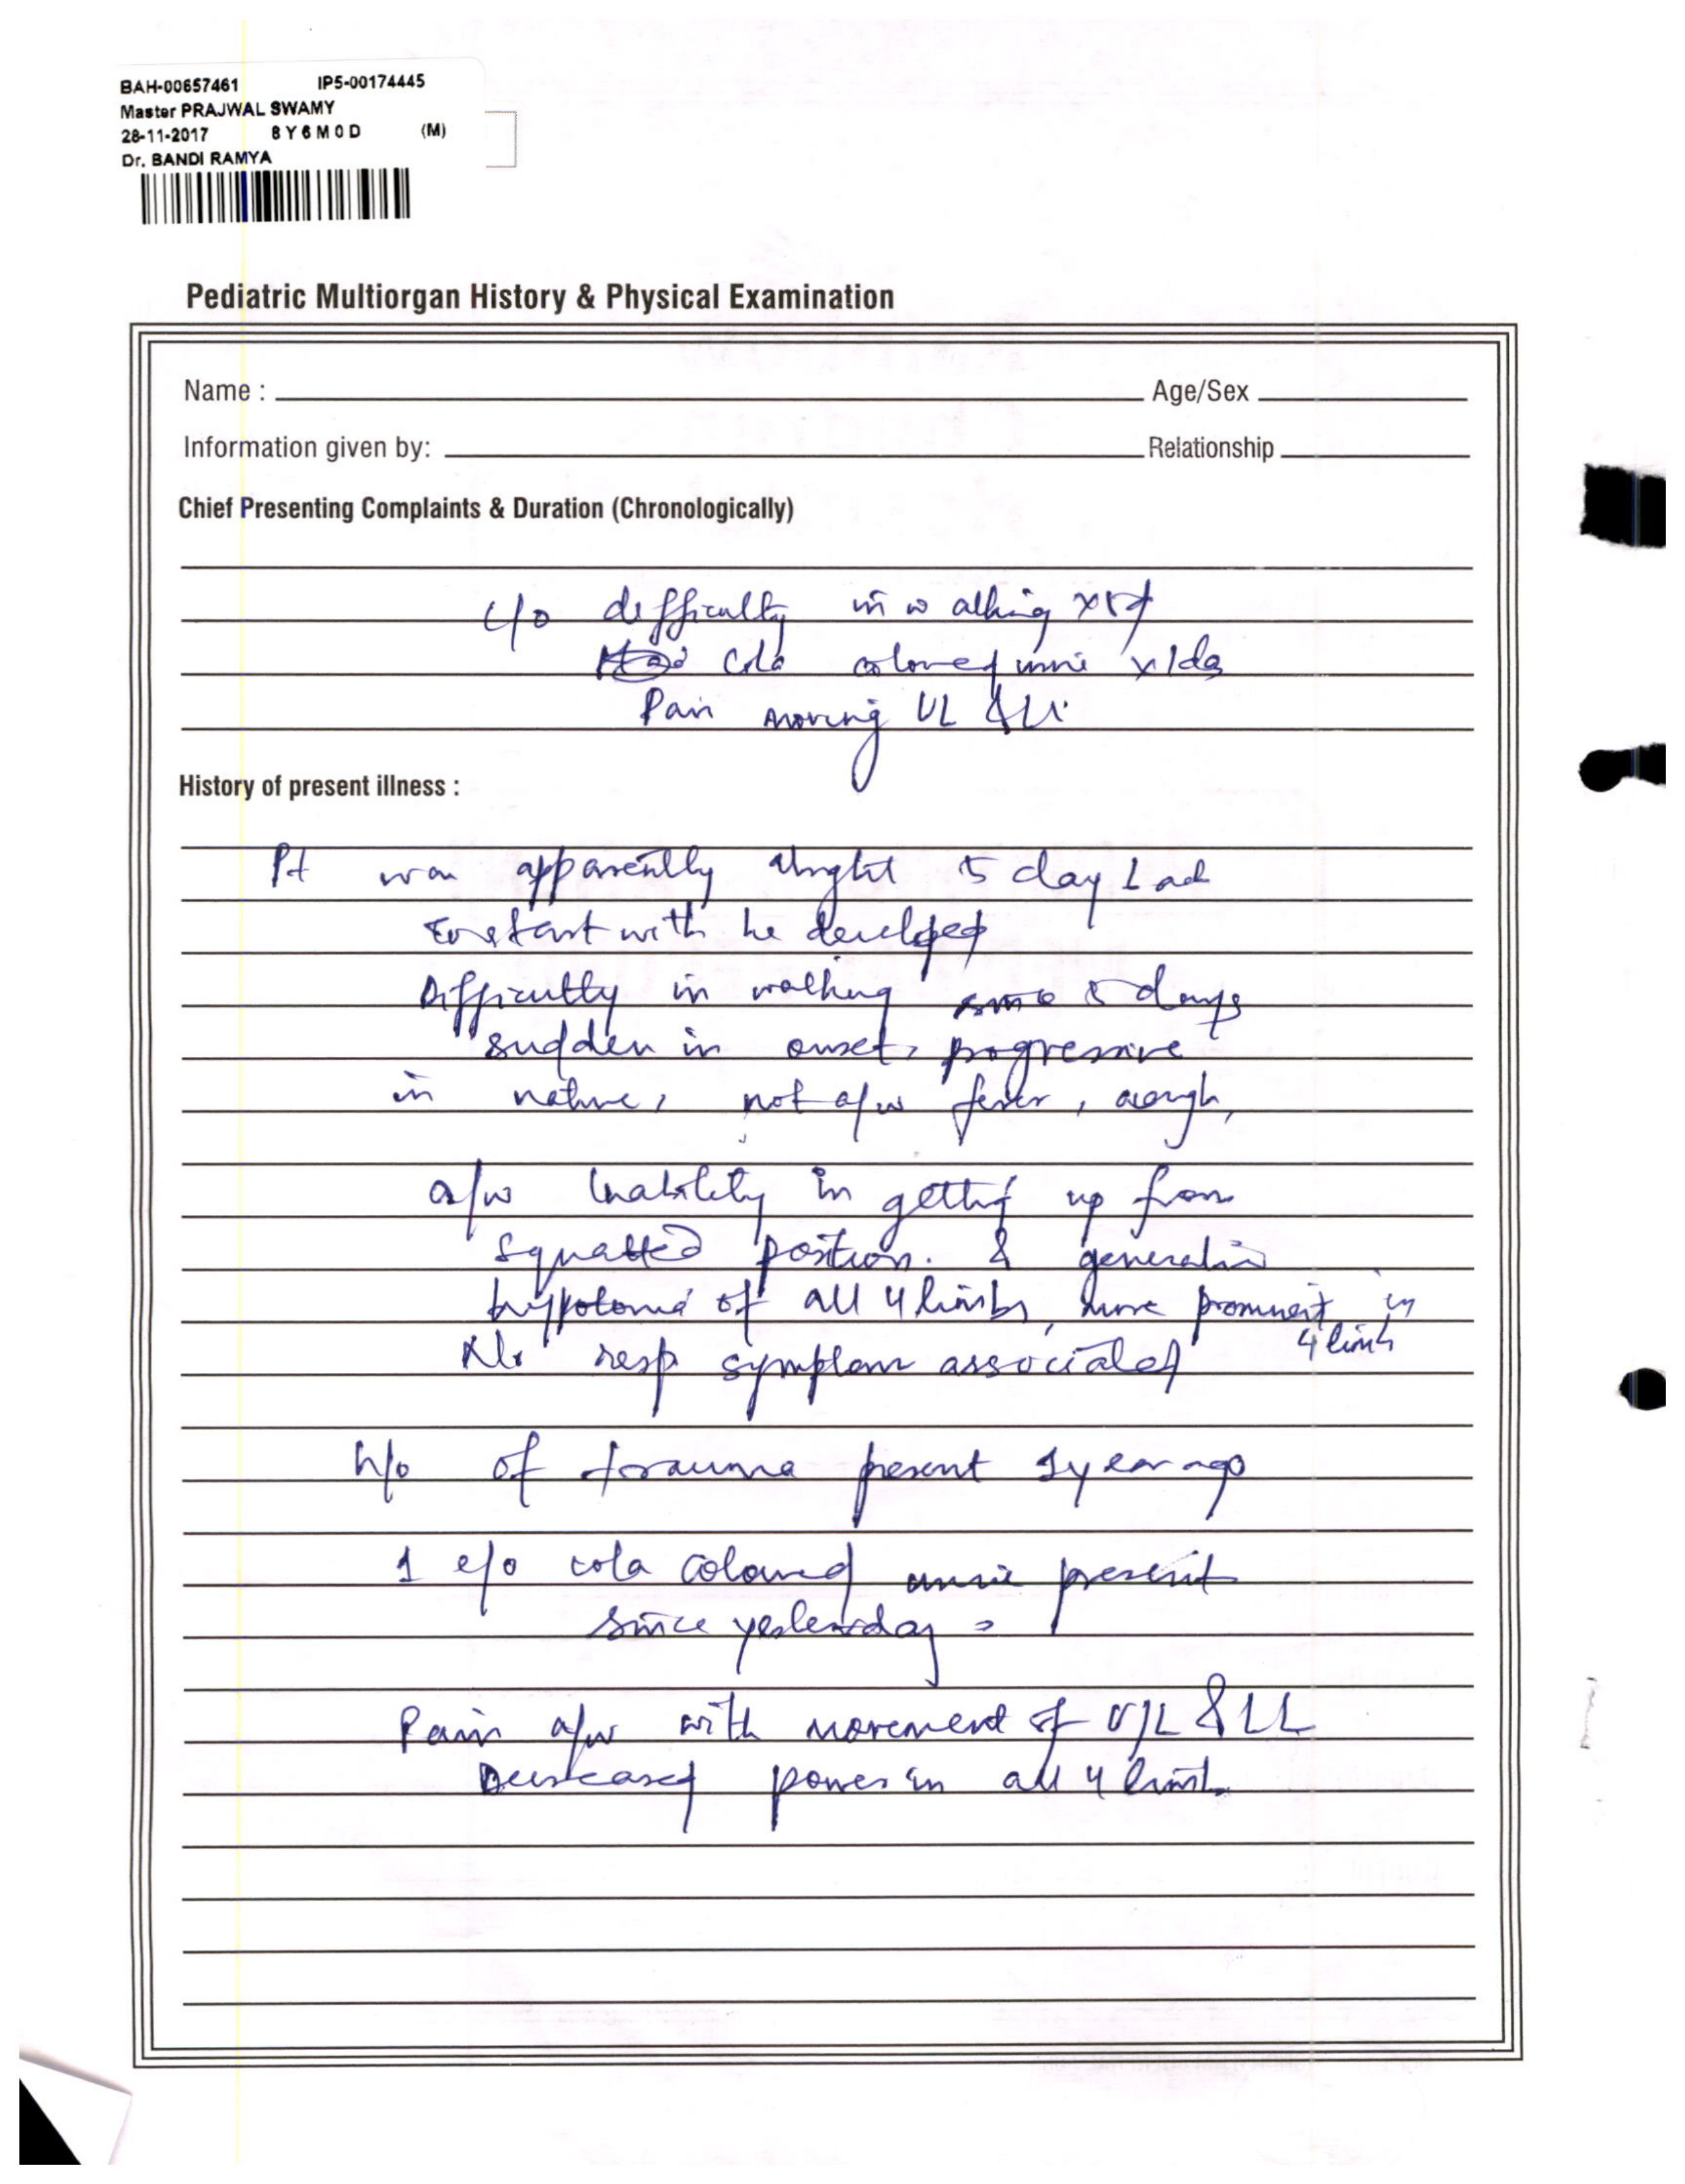 BAH-00657461 IP5-00174445
Master PRAJWAL SWAMY
28-11-2017 8Y6M0D (M)
Dr. BANDI RAMYA
Pediatric Multiorgan History & Physical Examination
Name : Age/Sex
Information given by: Relationship
Chief Presenting Complaints & Duration (Chronologically)
c/o difficulty in walking
cola coloured urine x 1 day
Pain moving UL & LL
History of present illness :
Pt was apparently alright 5 day back
with he developed
Difficulty in walking since 5 days
sudden in onset, progressive
in nature, not a/w fever, cough,
a/w inability in getting up from
squatted position. &
hypotonia of all 4 limbs, more prominent in
4 limb
No resp symptom associated
h/o of trauma present 1 year ago
1 e/o cola coloured urine present
since yesterday
Pain a/w with movement of U/L & LL
Decreased power in all 4 limb